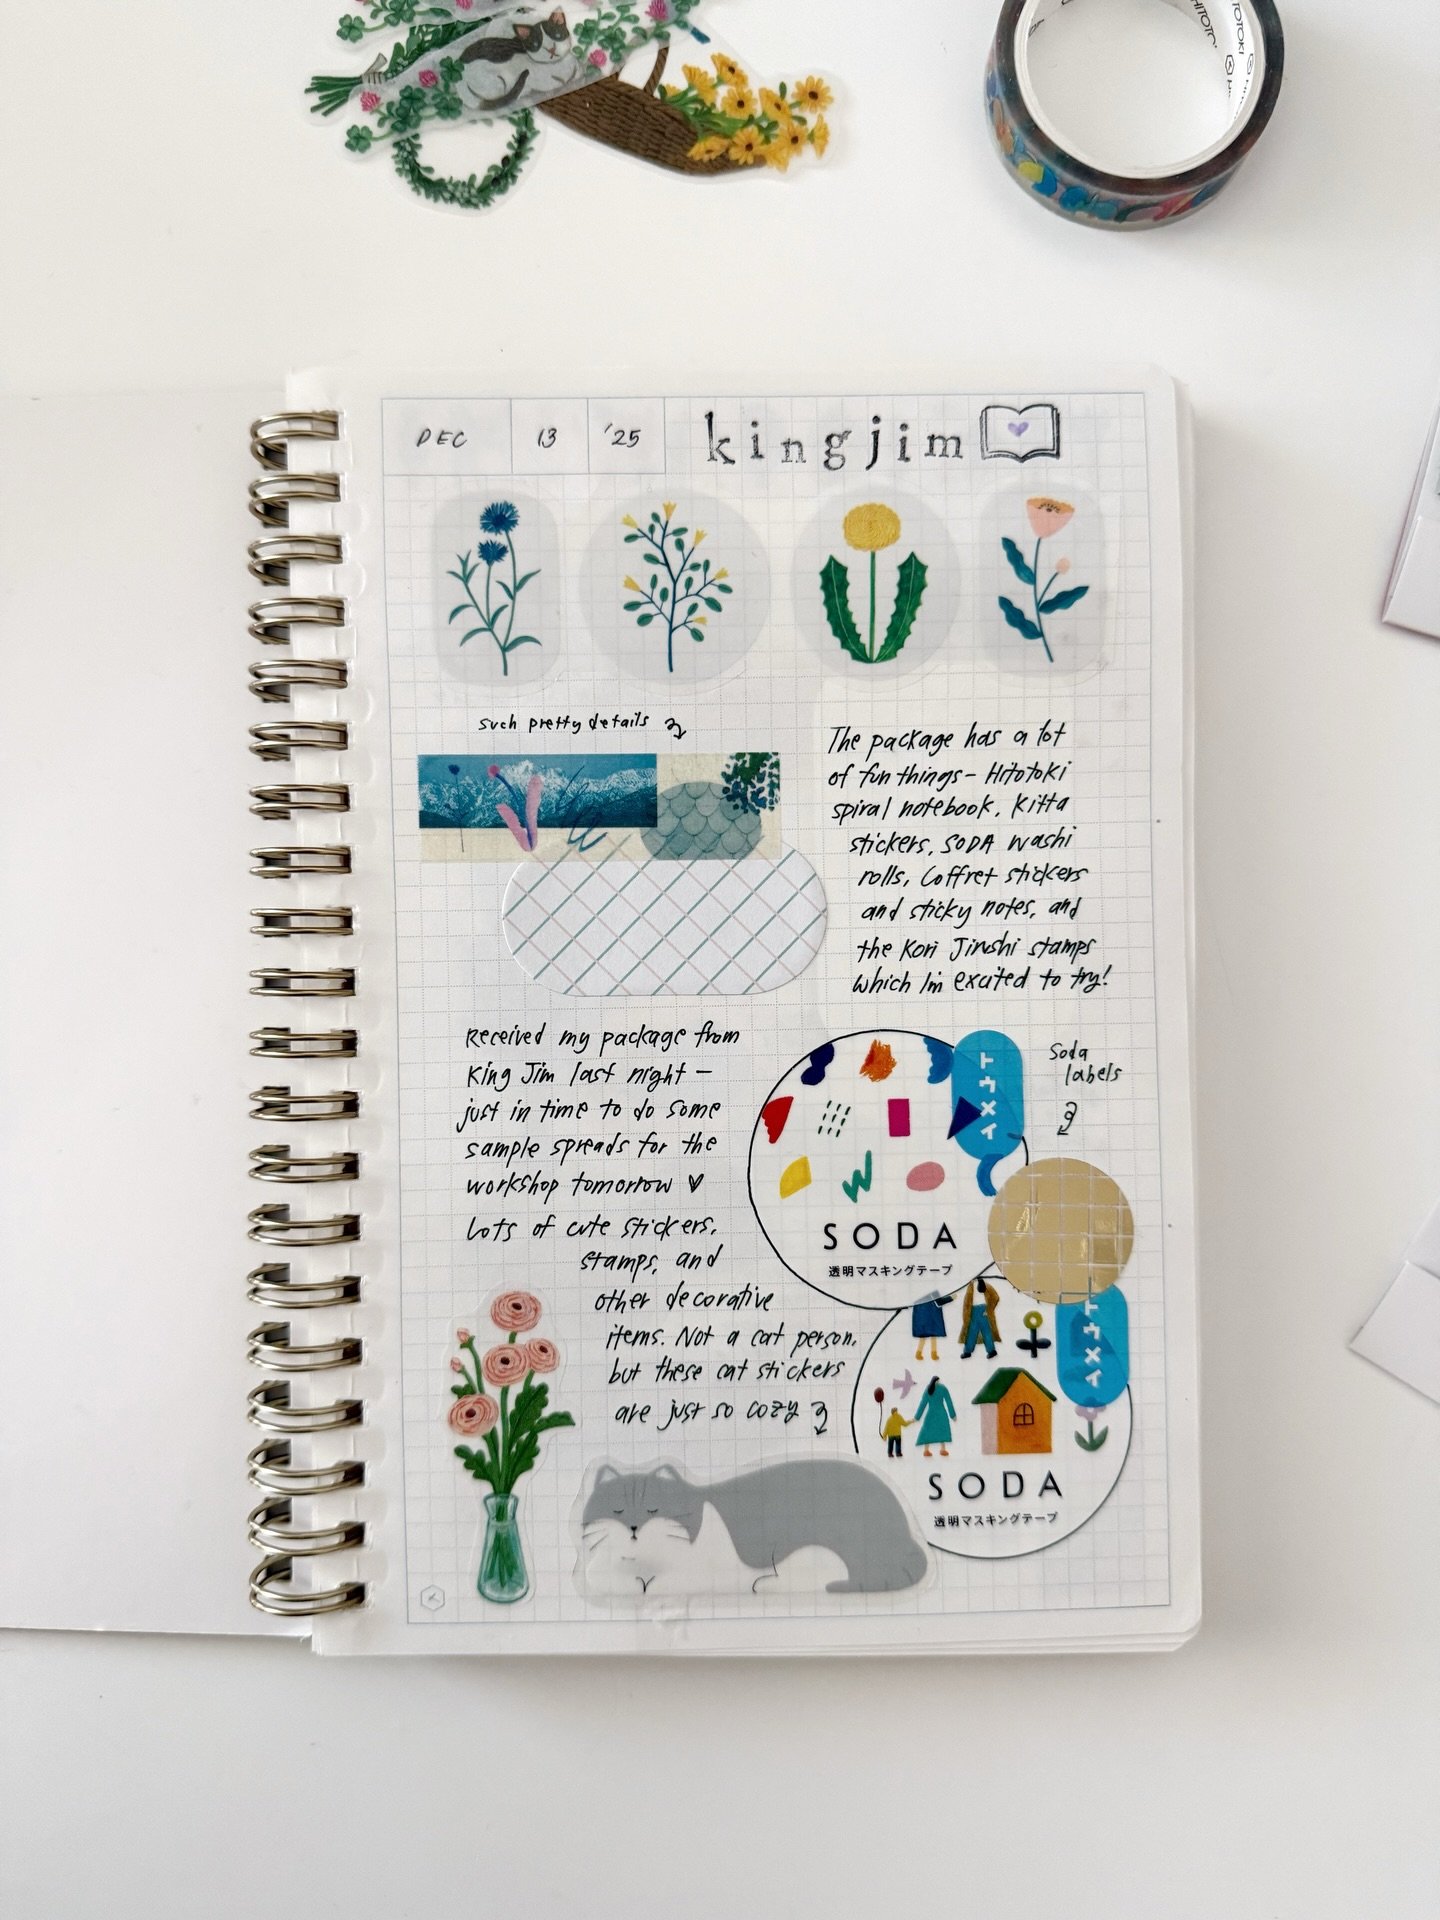 DEC 13 '25
kingjim
such pretty details
The package has a lot
of fun things - Hitotoki
spiral notebook, Kitta
stickers, SODA washi
rolls, Coffret stickers
and sticky notes, and
the Kori Jirushi stamps
which I'm excited to try!
Received my package from
King Jim last night -
just in time to do some
sample spreads for the
workshop tomorrow ♥
Lots of cute stickers,
stamps, and
other decorative
items. Not a cat person,
but these cat stickers
are just so cozy
Soda
labels
SODA
透明マスキングテープ
SODA
透明マスキングテープ
HITOTOKI